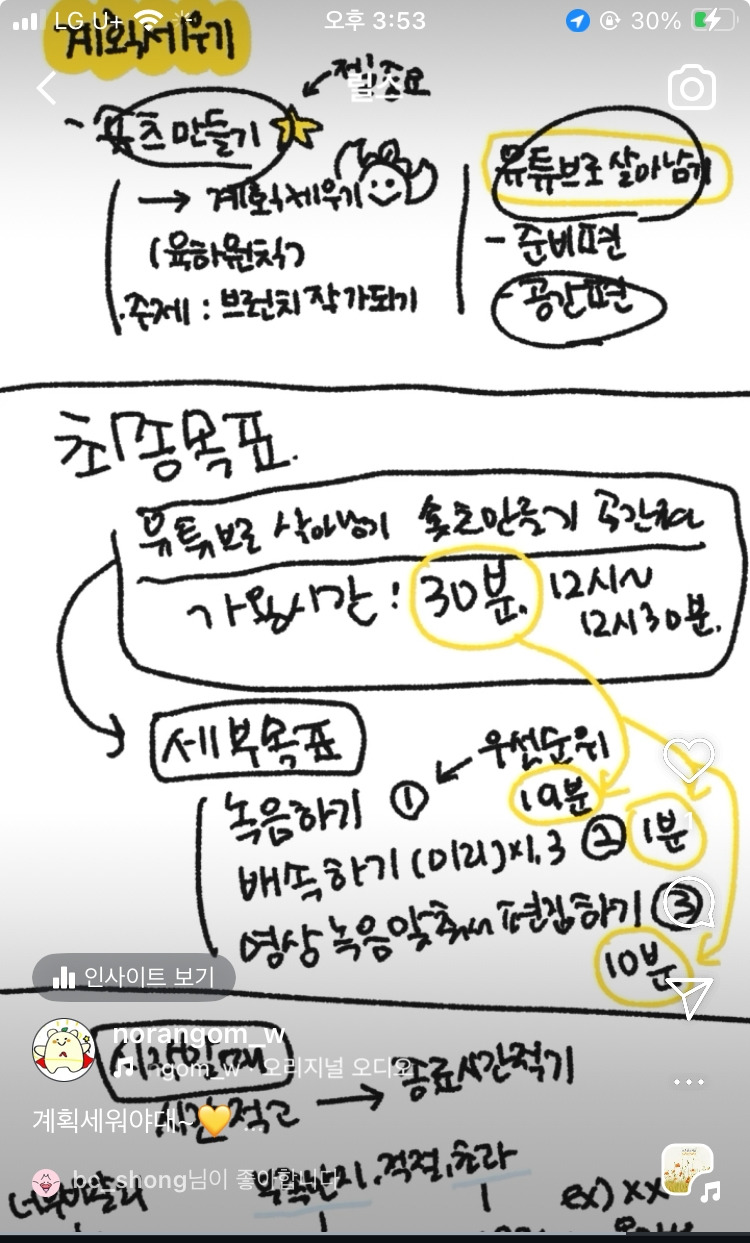 LG U+ 오후 3:53 30%
계획세우기
릴스
제일중요
~ 숏츠만들기
→ 계획세우기
(육하원칙)
·주제 : 브런치작가되기
유튜브로 살아남기
- 준비편
- 공간편
최종목표.
유튜브로 살아남기 숏츠만들기 공간편
가용시간 : 30분. 12시~
12시30분.
세부목표
우선순위
녹음하기 ① 19분
배속하기 (미리)×1.3 ② 1분
영상 녹음맞춰서 편집하기 ③
10분
1
인사이트 보기
norangom_w
ngom_w · 오리지널 오디오
시간적고 → 종료시간적기
계획세워야대~💛 ...
bo_shong님이 좋아합니다
적절, 초라
ex) xx